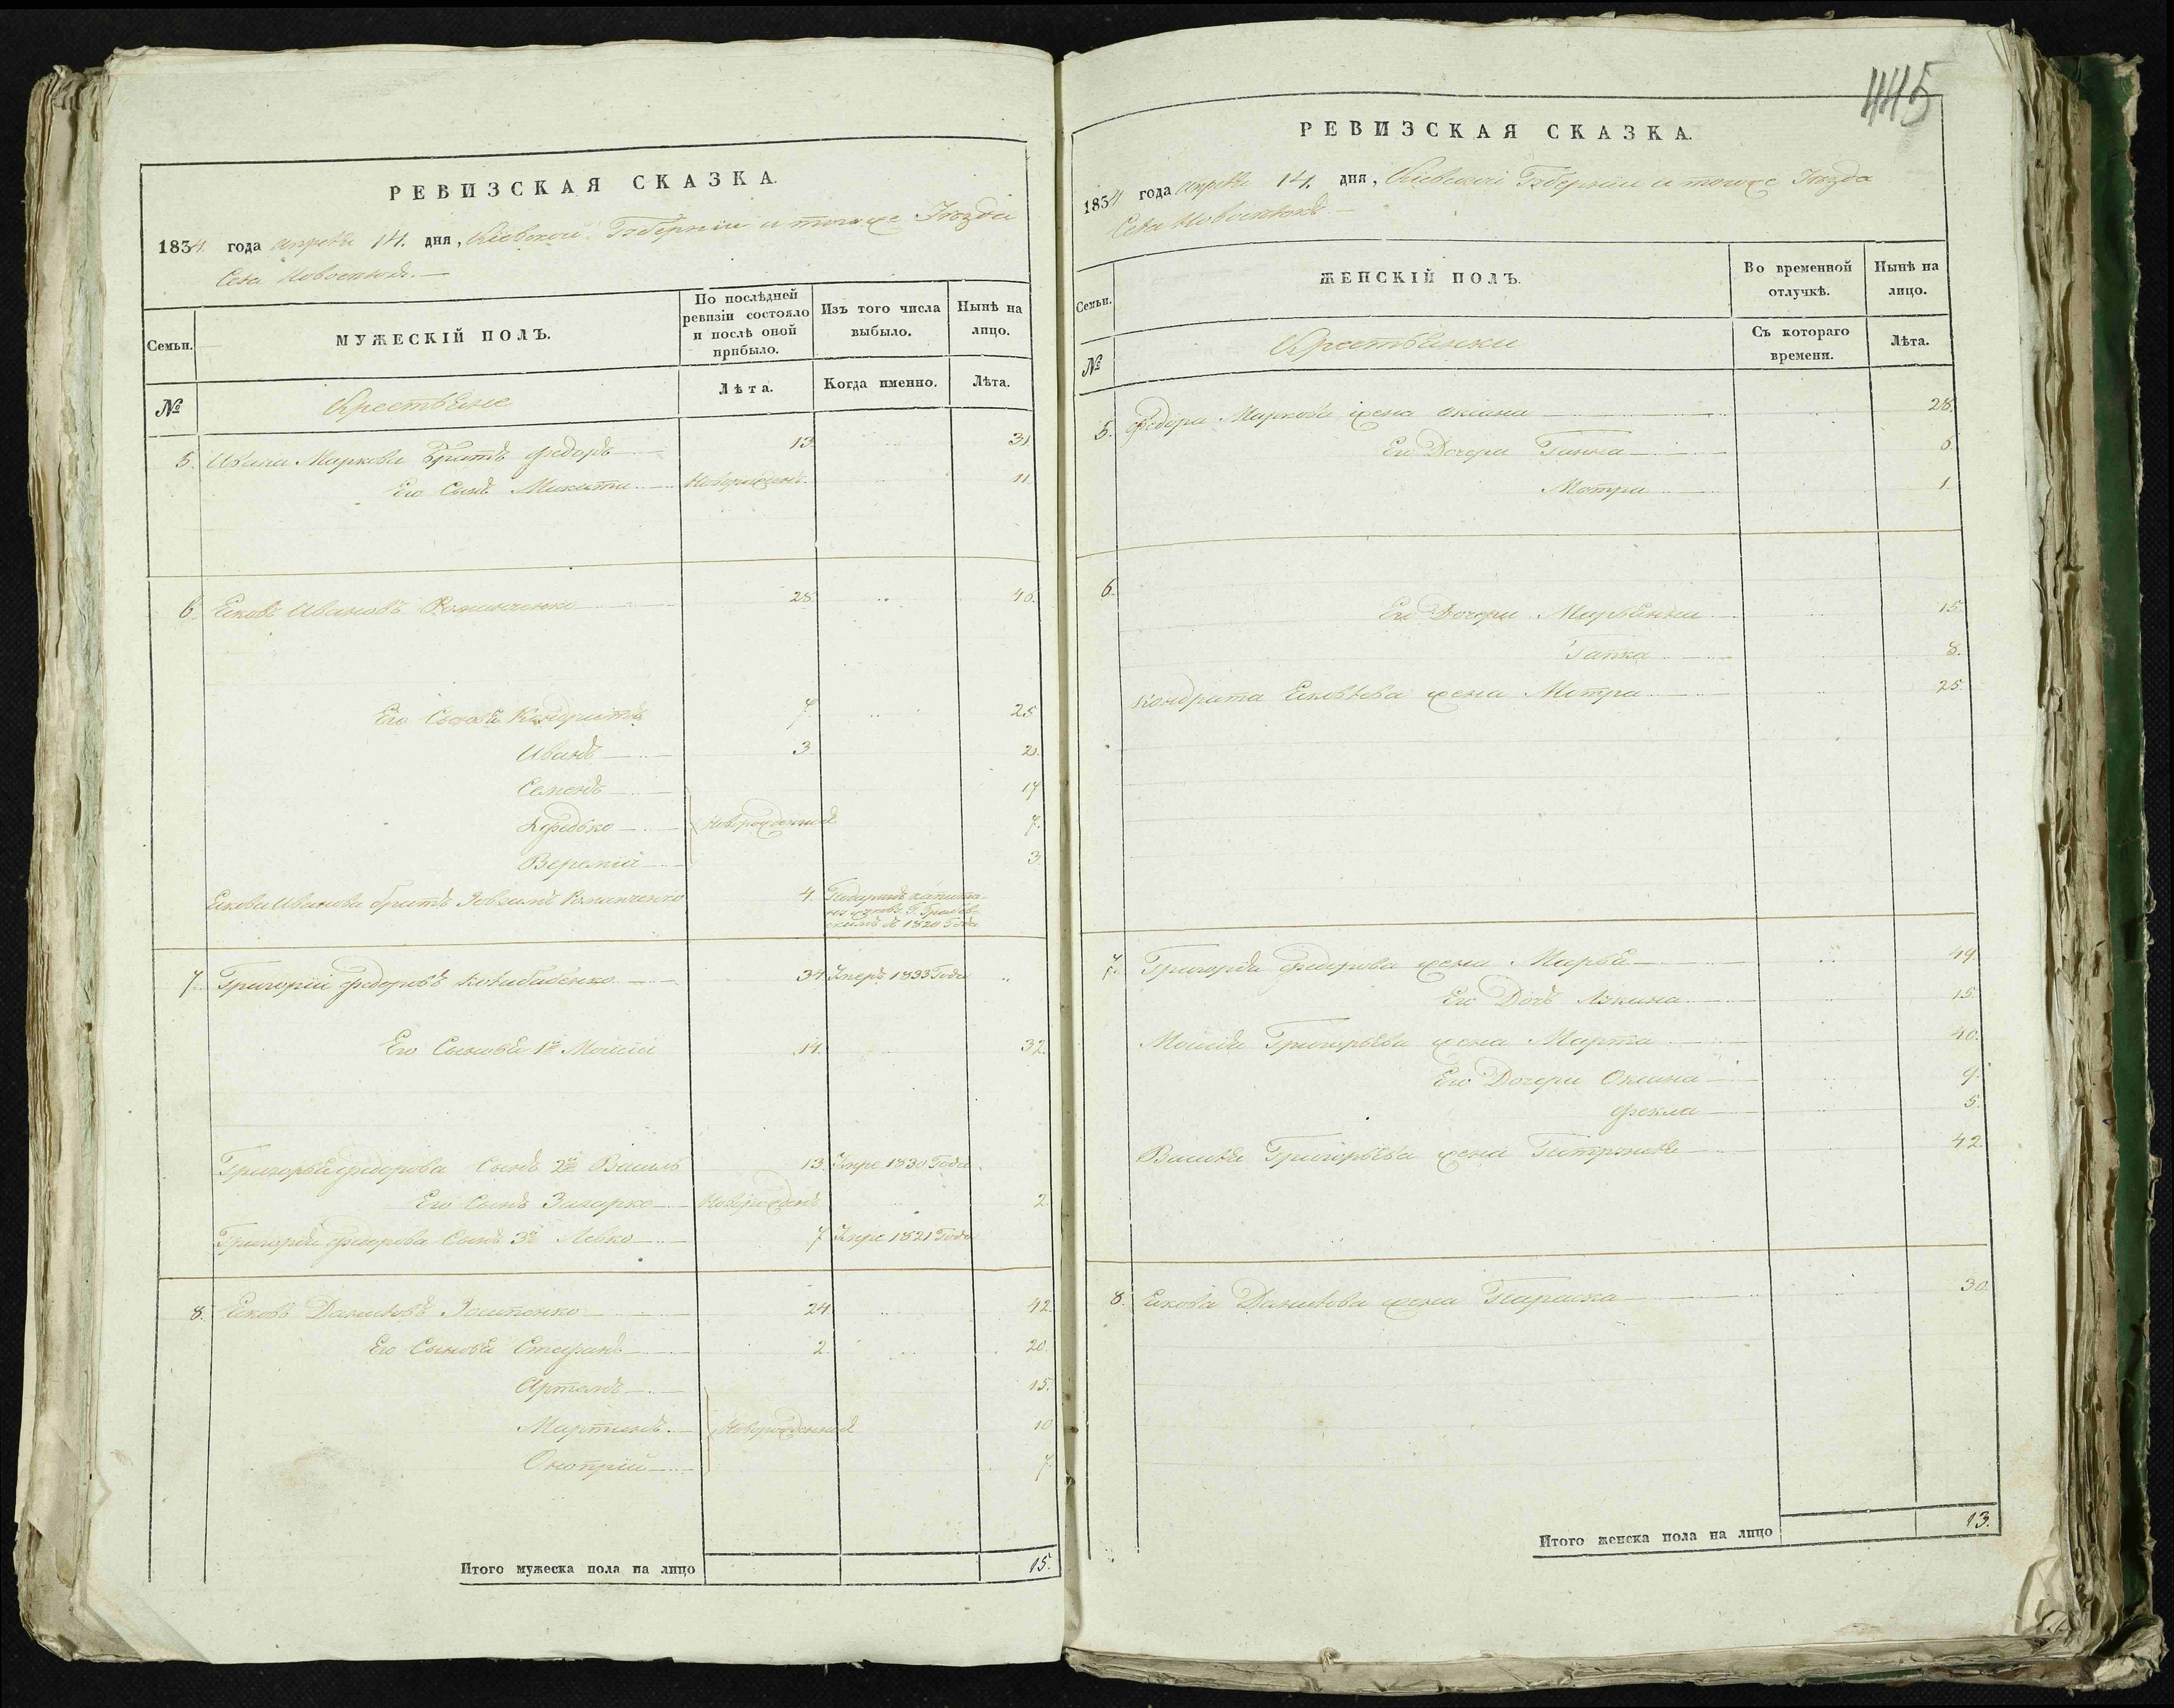 445
РЕВИЗСКАЯ СКАЗКА.
1834 года апреля 14. дня, Кіевской Губерніи и тогоже Уезда
Села
МУЖЕСКІЙ ПОЛЪ.
По послѣдней ревизіи состояло и послѣ оной прибыло.
Изъ того числа выбыло.
Нынѣ на лицо.
Семьи.
№
Крестьяне
Лѣта.
Когда именно.
Лѣта.
5. Ивана Маркова братъ Федоръ 13. 31
Его Сынъ Микита Новорожденъ. 11
6. Ековъ Ивановъ Романченко 28. 46.
Его Сыновья Кондратъ 7 25
Иванъ 3 21.
Семенъ 17
Новорожденные 7.
Веремій 3
Екова Иванова братъ Романченко 4. въ 1820 Года
7. Григорій Федоровъ 34 Умеръ 1833 Года
Его Сыновья 1й Моисій 14. 32.
Григорья Федорова Сынъ 2й Василь 13. Умре 1830 Года.
Его Сынъ Захарко Новорожденъ 2.
Григорія Федорова Сынъ 3й Левко 7 Умре 1821 Года
8. Ековъ Даниловъ 24 42.
Его Сыновья Стефанъ 2 20.
Артемъ 15.
Мартинъ. Новорожденные 10
Онопрій 7.
Итого мужеска пола на лицо 15.
РЕВИЗСКАЯ СКАЗКА.
1834 года апреля 14. дня, Кіевской Губерніи и тогоже Уезда
Села
Семьи.
ЖЕНСКІЙ ПОЛЪ.
Во временной отлучкѣ.
Нынѣ на лицо.
№
Крестьянки
Съ котораго времени.
Лѣта.
5. Федора Маркова жена Оксана 28.
Его Дочери Ганна 6.
Мотра 1.
6.
Его Дочери Марьянна 15.
Гапка 8.
Кондрата Ековлева жена Мотра 25.
7. Григорія Федорова жена Марья 49.
Его Дочь 15.
Моисія Григорьева жена Марта 40.
Его Дочери Оксана 9.
Фекла 5.
Василя Григорьева жена 42
8. Екова Данилова жена Параска 30.
Итого женска пола на лицо 13.